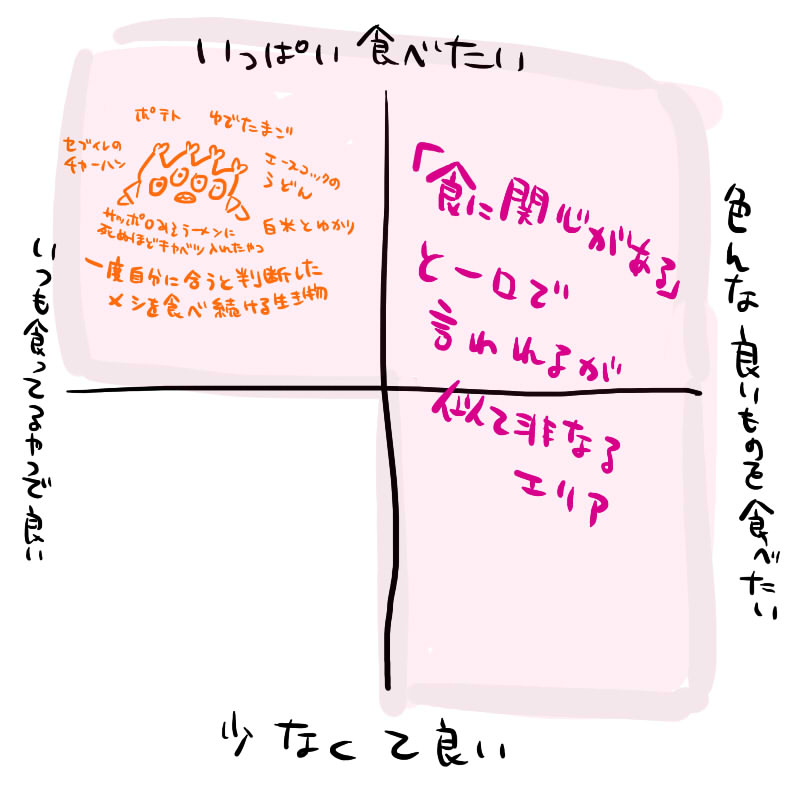 いっぱい食べたい
ポテト
ゆでたまご
セブイレの
チャーハン
エースコックの
うどん
サッポロみそラーメンに
死ぬほどキャベツ入れたやつ
白米とゆかり
一度自分に合うと判断した
メシを食べ続ける生き物
「食に関心がある」
と一口で
言われるが
似て非なる
エリア
いつも食ってるやつで良い
色んな良いものを食べたい
少なくて良い